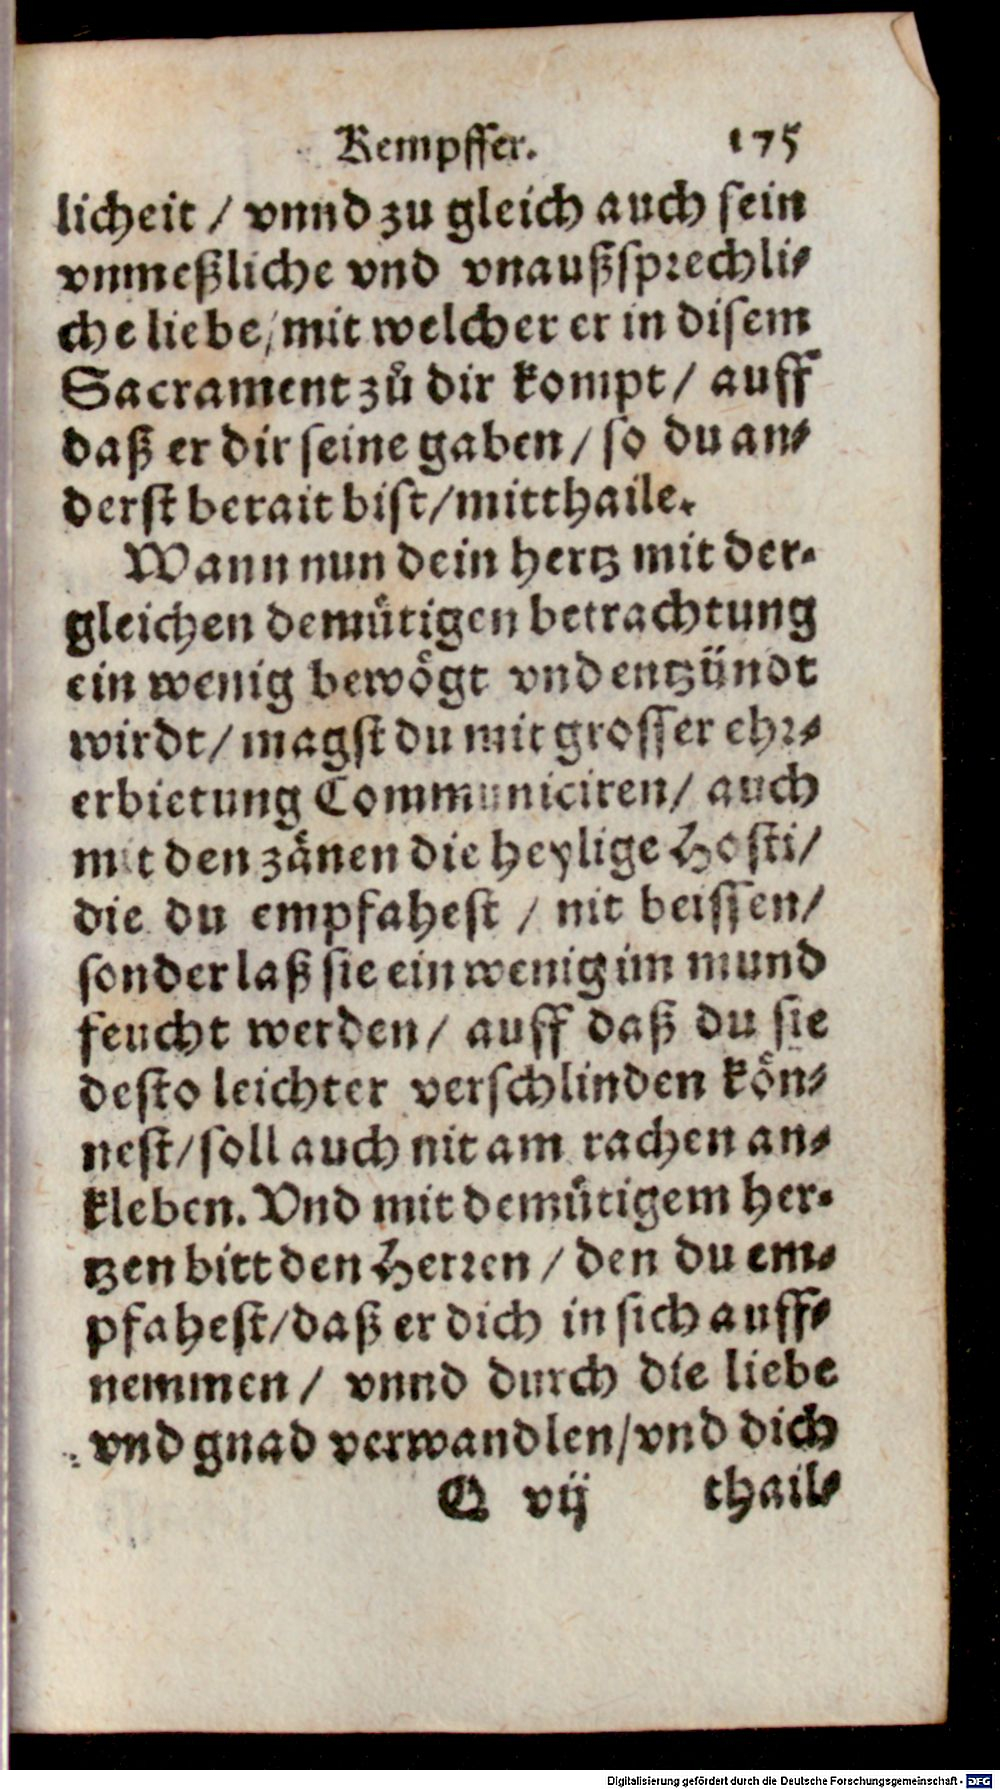 Kempffer. 175
licheit / vnnd zu gleich auch sein
vnmeßliche vnd vnaußsprechli-
che liebe / mit welcher er in disem
Sacrament zů dir kompt / auff
daß er dir seine gaben / so du an-
derst berait bist / mitthaile.
Wann nun dein hertz mit der-
gleichen demütigen betrachtung
ein wenig bewögt vnd entzündt
wirdt / magst du mit grosser ehr-
erbietung Communiciren / auch
mit den zänen die heylige Hosti /
die du empfahest / nit beissen /
sonder laß sie ein wenig im mund
feucht werden / auff daß du sie
desto leichter verschlinden kön-
nest / soll auch nit am rachen an-
kleben. Vnd mit demütigem her-
tzen bitt den Herren / den du em-
pfahest / daß er dich in sich auff-
nemmen / vnnd durch die liebe
vnd gnad verwandlen / vnd dich
Q vij thail-
Digitalisierung gefördert durch die Deutsche Forschungsgemeinschaft - DFG